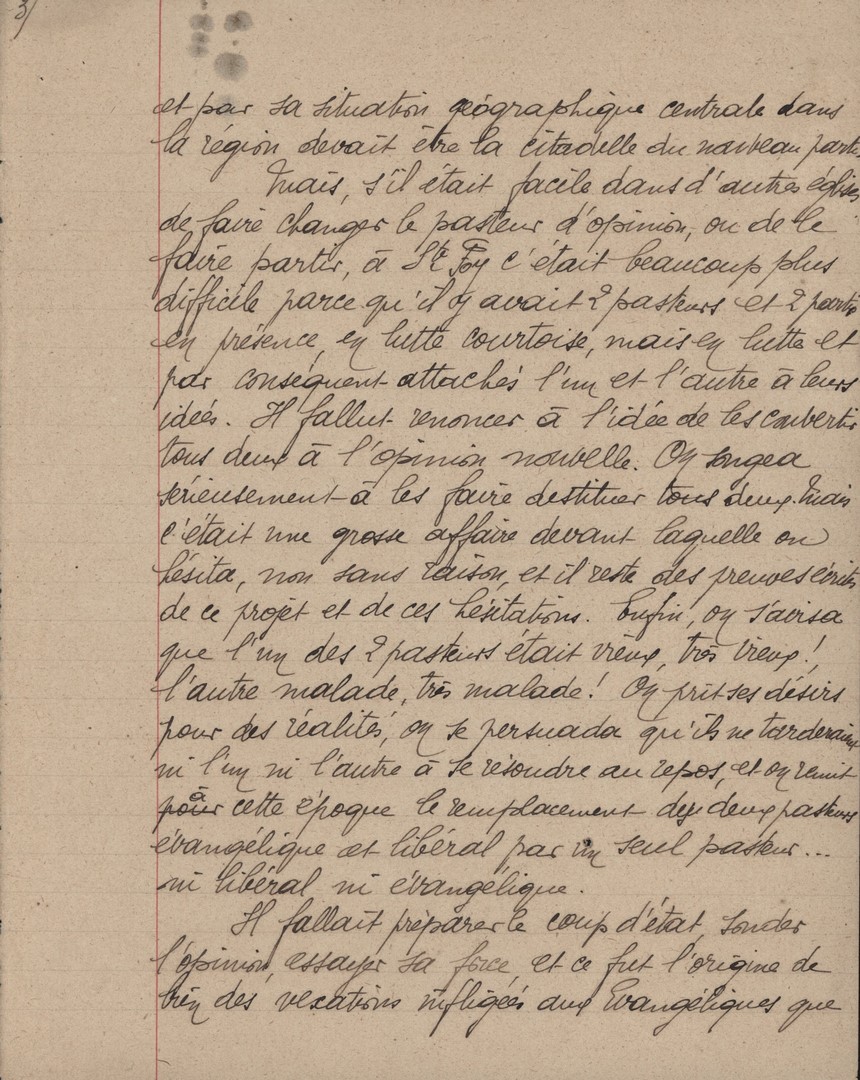 3/
et par sa situation géographique centrale dans
la région devait être la citadelle du nouveau parti.
Mais, s'il était facile dans d'autres églises
de faire changer le pasteur d'opinion, ou de le
faire partir, à Ste Foy c'était beaucoup plus
difficile parce qu'il y avait 2 pasteurs et 2 partis
en présence, en lutte courtoise, mais en lutte et
par conséquent attachés l'un et l'autre à leurs
idées. Il fallut renoncer à l'idée de les convertir
tous deux à l'opinion nouvelle. On songea
sérieusement à les faire destituer tous deux. Mais
c'était une grosse affaire devant laquelle on
hésita, non sans raison, et il reste des preuves écrites
de ce projet et de ces hésitations. Enfin, on s'avisa
que l'un des 2 pasteurs était vieux, très vieux !,
l'autre malade, très malade ! On prit ses désirs
pour des réalités, on se persuada qu'ils ne tarderaient
ni l'un ni l'autre à se résoudre au repos, et on remit
pour à cette époque le remplacement des deux pasteurs
évangélique et libéral par un seul pasteur...
ni libéral ni évangélique.
Il fallait préparer le coup d'état, sonder
l'opinion, essayer sa force, et ce fut l'origine de
bien des vexations infligées aux Evangéliques que